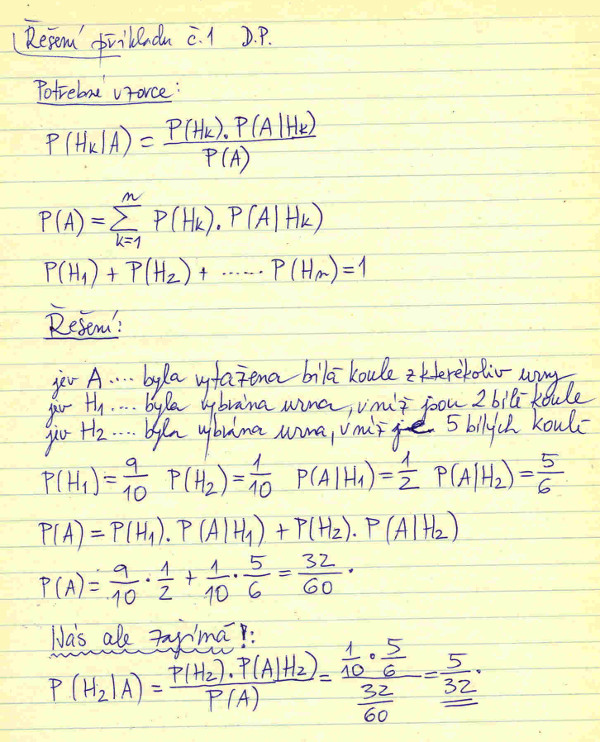 Řešení příkladu č.1 D.P.
Potřebné vzorce:
P(Hk|A) = P(Hk).P(A|Hk) / P(A)
P(A) = ∑_{k=1}^{n} P(Hk).P(A|Hk)
P(H1) + P(H2) + ...... P(Hn) = 1
Řešení:
jev A .... byla vytažena bílá koule z kterékoliv urny
jev H1 .... byla vybrána urna, v níž jsou 2 bílé koule
jev H2 .... byla vybrána urna, v níž je 5 bílých koulí
P(H1) = 9/10 P(H2) = 1/10 P(A|H1) = 1/2 P(A|H2) = 5/6
P(A) = P(H1).P(A|H1) + P(H2).P(A|H2)
P(A) = 9/10 · 1/2 + 1/10 · 5/6 = 32/60.
Nás ale zajímá!:
P(H2|A) = P(H2).P(A|H2) / P(A) = (1/10 · 5/6) / (32/60) = 5/32.